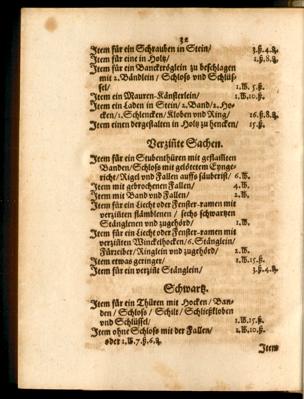 32
Item für ein Schrauben in Stein/ 3.ß.4.₰.
Item für eine in Holtz/ 1.ß.8.₰.
Item für ein Bancktröglein zu beschlagen
mit 2. Bändlein / Schloß vnd Schlüs-
sel/ 1.W.5.ß.
Item ein Mauren-Känsterlein/ 1.W.10.ß.
Item ein Laden in Stein/2. Band/2. Ho-
cken/1. Schlencken/Kloben vnd Ring/ 16.ß.8.₰.
Item einen dergestalten in Holtz zu hencken/ 15.ß.
Verzinte Sachen.
Item für ein Stubenthüren mit geflammten
Banden/Schloß mit gelötetem Einge-
richt/Rigel vnd Fallen auffs säuberist/ 6.W.
Item mit gebrochenen Fallen/ 4.W.
Item mit Band vnd Fallen/ 2.W.
Item für ein Liecht oder Fenster-ramen mit
verzinten / sechs schwartzen
Stänglenen vnd zugehörd/ 1.W.
Item für ein Liecht oder Fenster-ramen mit
verzinten Winckelhocken/6. Stänglein/
Fürreiber/Ringlein vnd zugehörd/ 2.W.
Item etwas geringer/ 1.W.15.ß.
Item für ein verzint Stänglein/ 3.ß.4.₰.
Schwartz.
Item für ein Thüren mit Hocken/ Ban-
den / Schloß / Schilt / Schließkloben
vnd Schlüssel/ 1.W.15.ß.
Item ohne Schloß mit der Fallen/ 1.W.10.ß.
oder 1.W.7.ß.6.₰.
Item